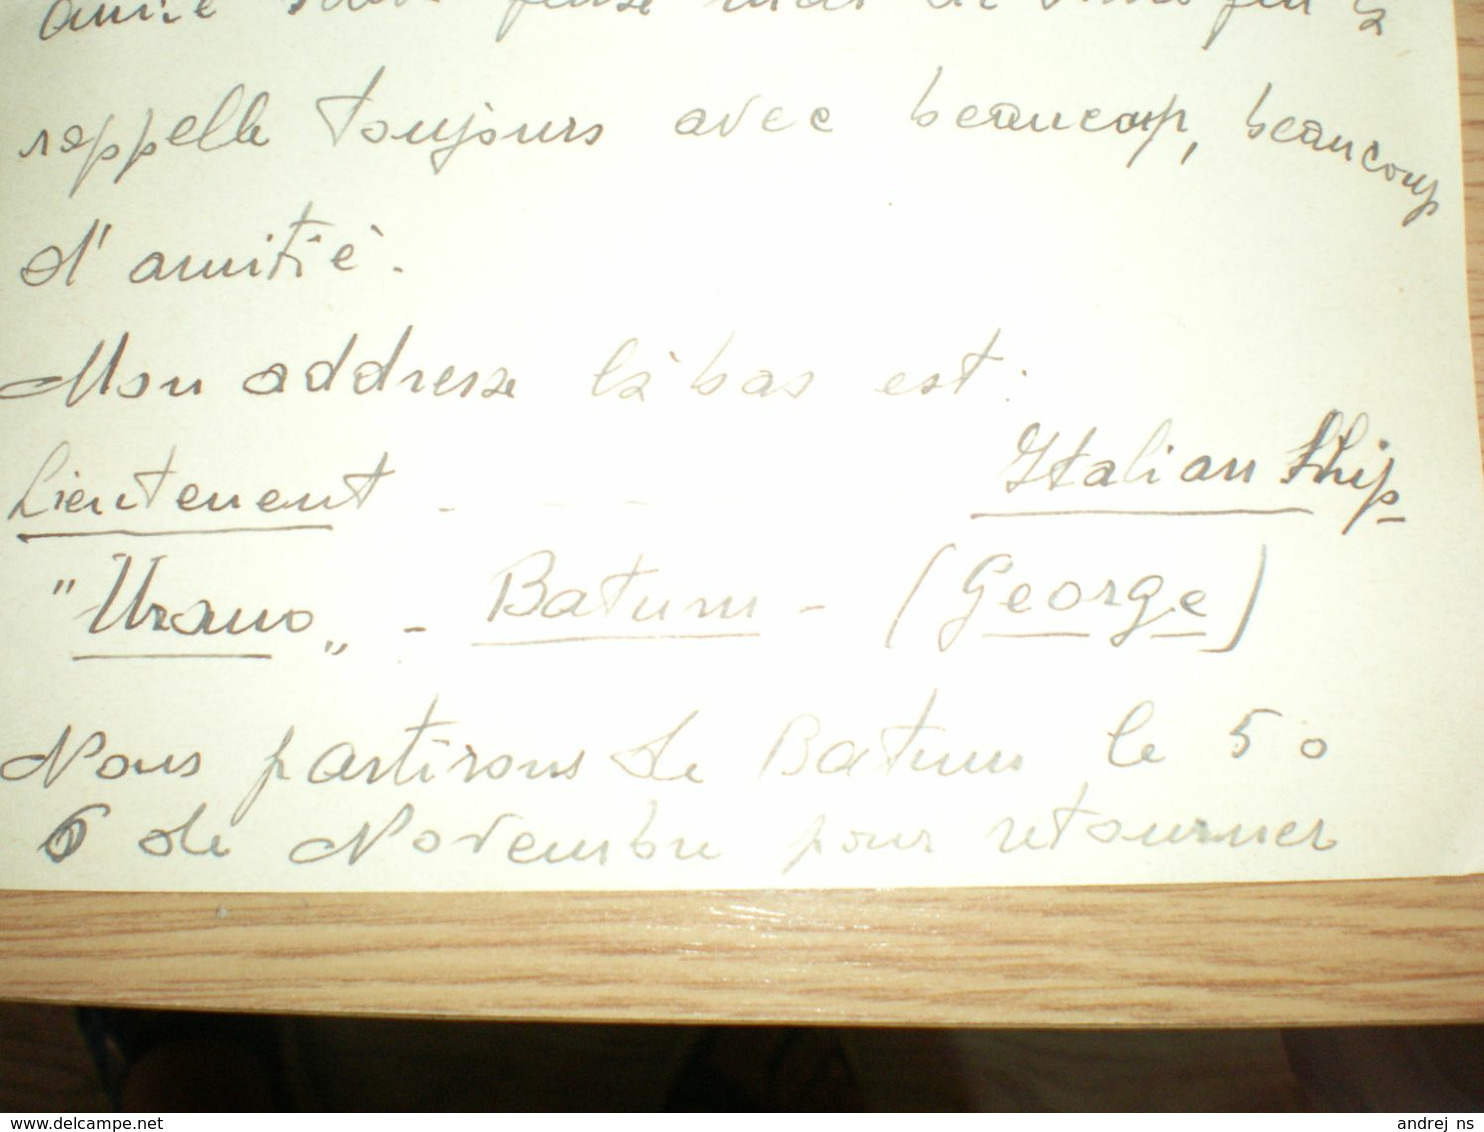 rappelle toujours avec beaucoup, beaucoup
d'amitiè.
Mon addresse là bas est:
Lieutenent - Italian Ship-
"Urano„ - Batum - (George)
Nous partirons de Batum le 5 o
6 de Novembre pour retourner
andrej ns